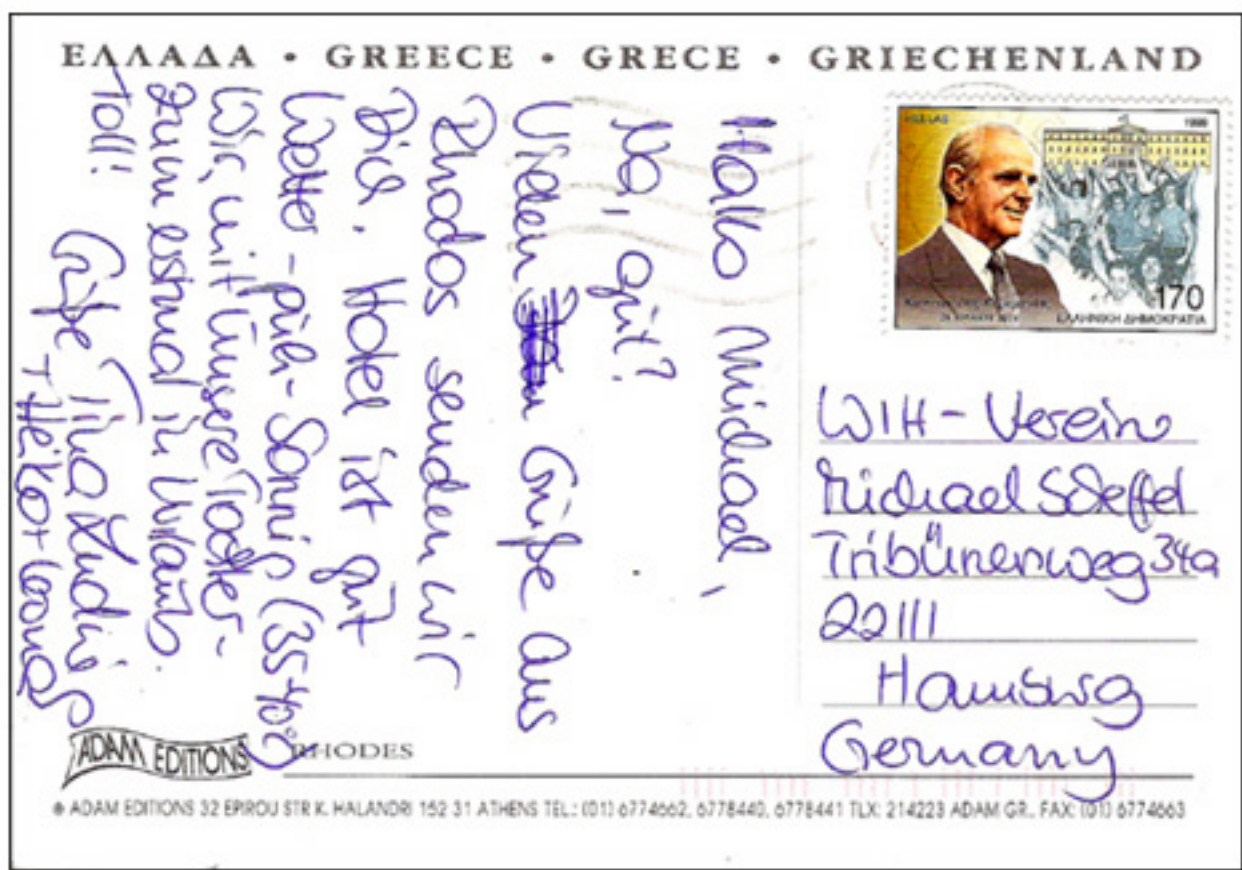 ΕΛΛΑΔΑ • GREECE • GRECE • GRIECHENLAND
Hallo Michael,
Na, gut?
Vielen Grüße aus
Rhodos senden wir
Dich. Hotel ist gut
Wetter - puh - Sonnig (35-40°)
Wir, mit unsere Tochter-
zum erstmal in Urlaub.
Toll!
Grüße Tina
+ Heiko +
HELLAS
1998
170
ΕΛΛΗΝΙΚΗ ΔΗΜΟΚΡΑΤΙΑ
WIH-Verein
Michael Scheffel
Tribünenweg 34a
22111
Hamburg
Germany
ADAM EDITIONS
RHODES
© ADAM EDITIONS 32 EPIROU STR K. HALANDRI 152 31 ATHENS TEL.: (01) 6774662, 6778440, 6778441 TLX: 214223 ADAM GR., FAX: (01) 6774663